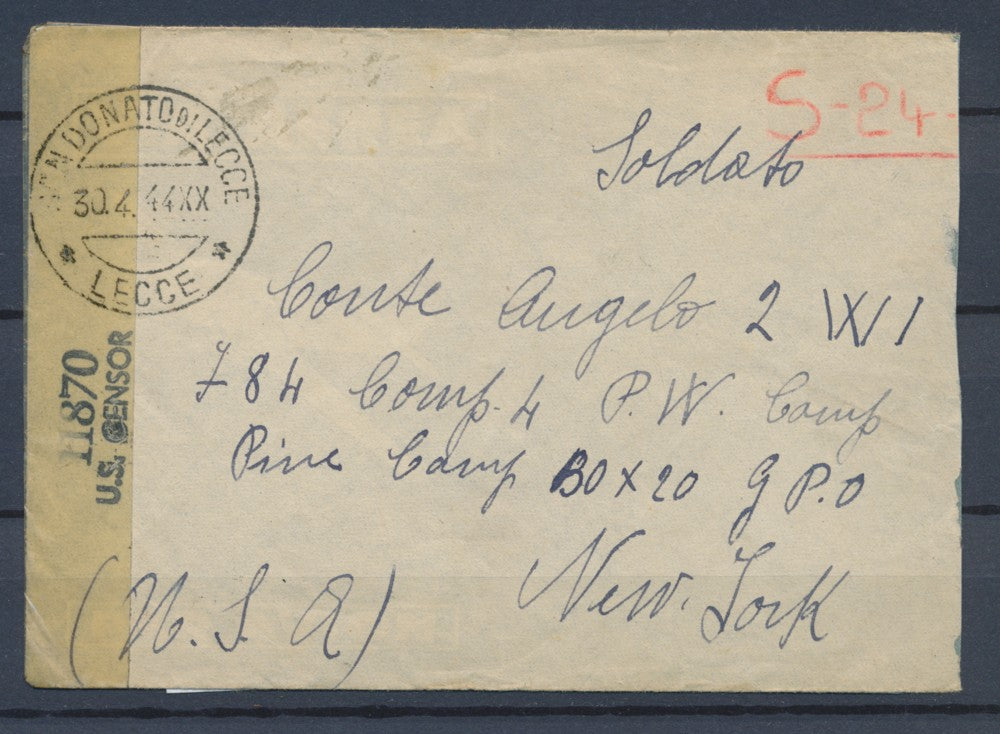 S-24-
Soldato
SAN DONATO DI LECCE
30.4.44XX
LECCE
Conte Angelo 2 IXI/1
784 Comp. 4 P.W. Camp
Pine Camp BOX 20 G P.O
New. York
(U. S. A)
11870
U.S. CENSOR